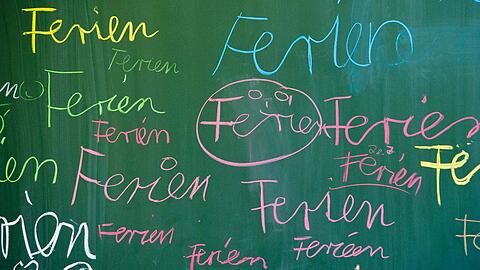 Ferien
Ferien
Ferien
Ferien
Ferien
Ferien
Ferien
Ferien
Ferien
Ferien
Ferien
Ferien
Ferien
Ferien